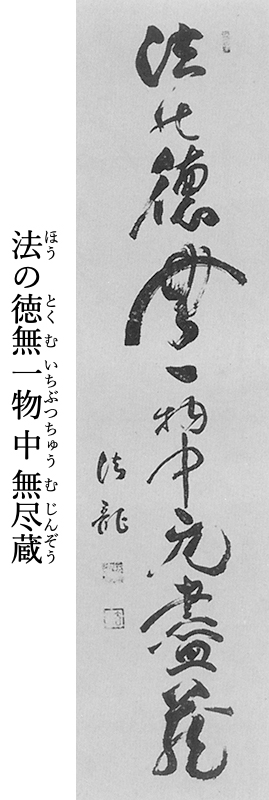 法の徳無一物中無尽蔵
ほう とく む いちぶつちゅう む じんぞう
法能徳無一物中无盡蔵
法龍